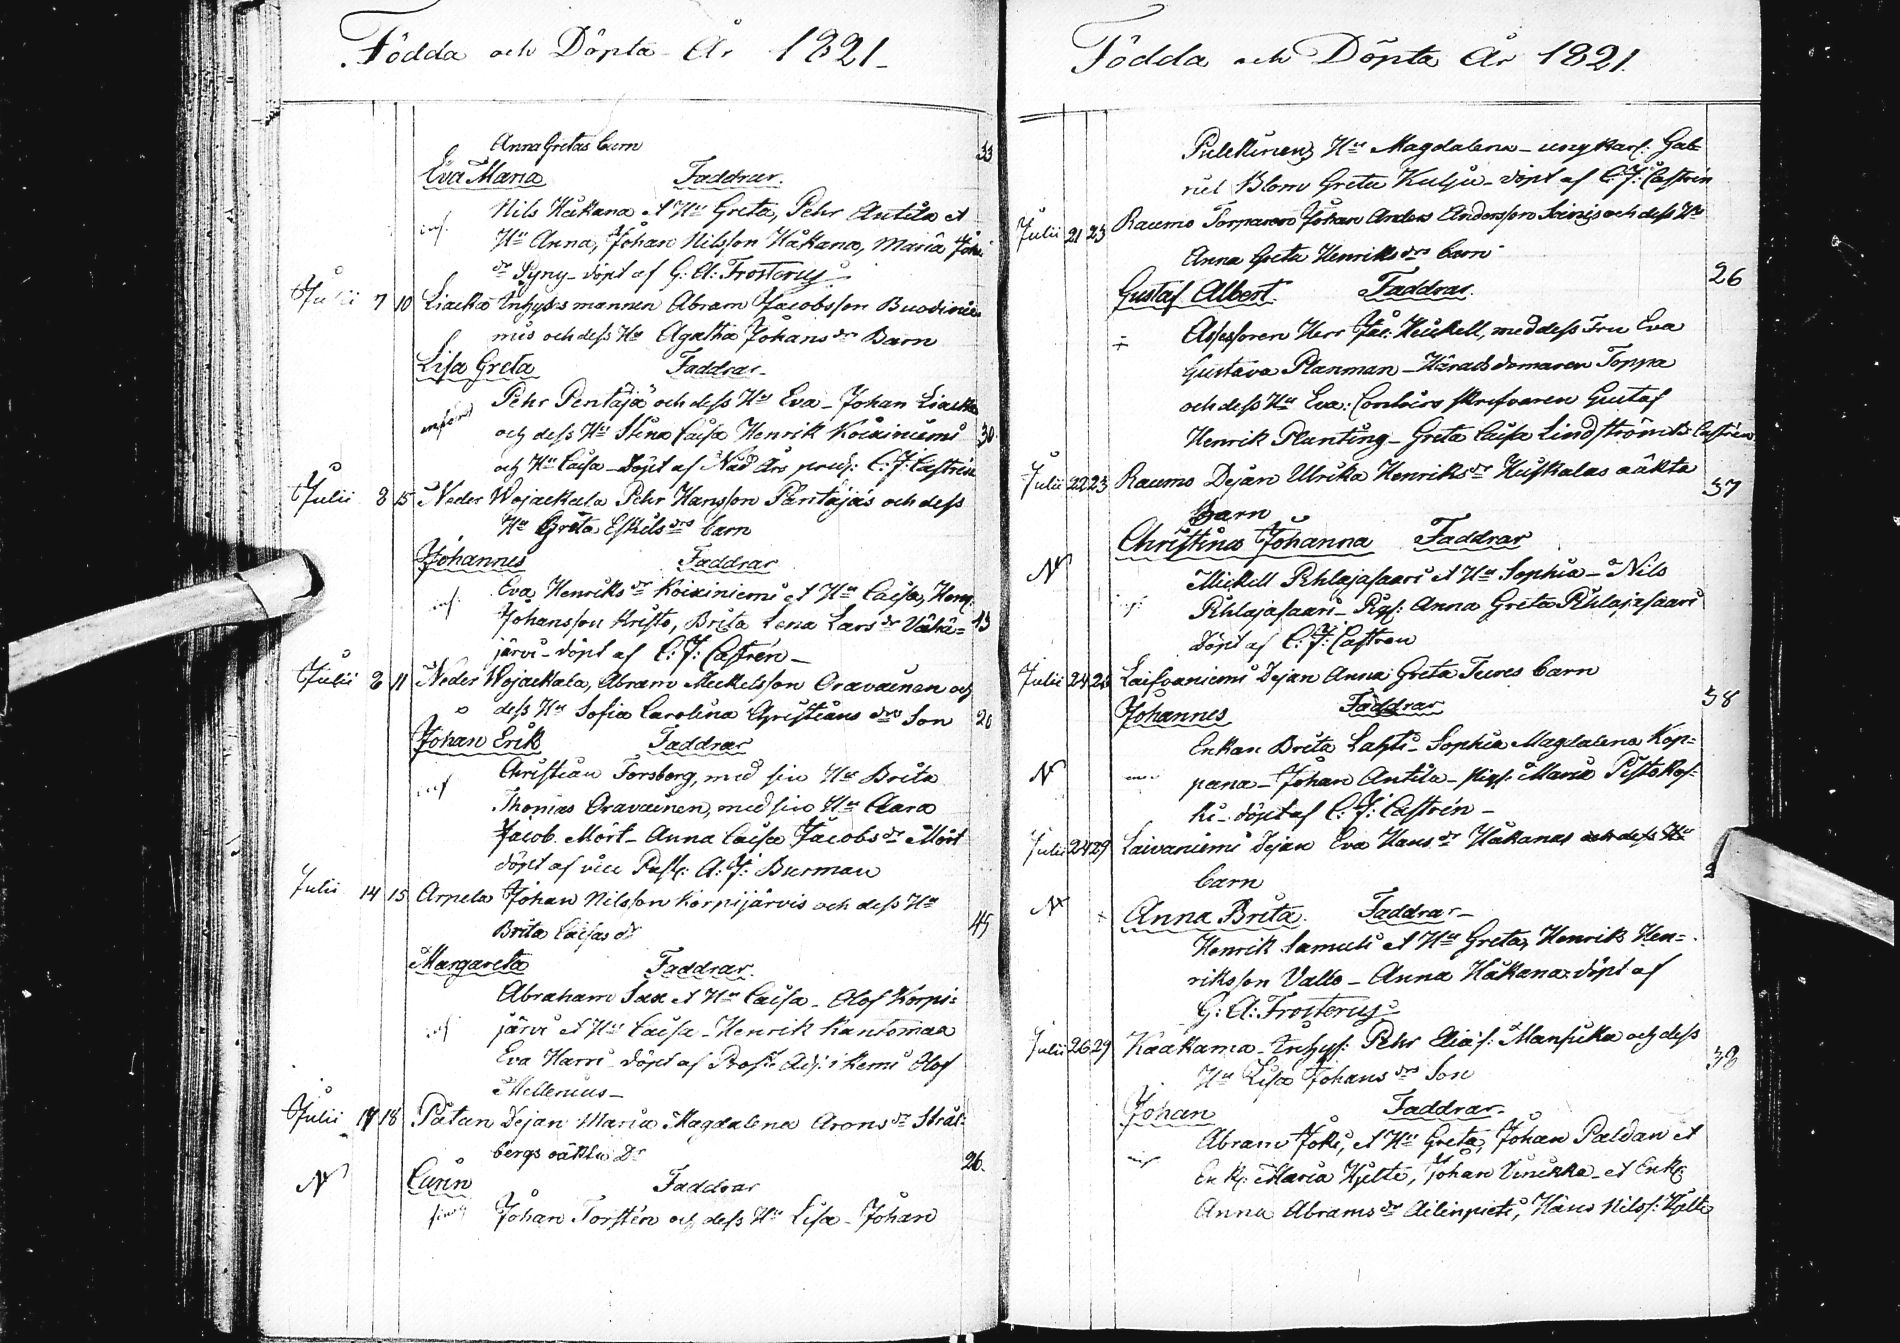 Födda och Döpta År 1821
Anna Gretas barn 33
Eva Maria Faddrar
Nils Håkana et Hu Greta, Pehr Antila et
inf. Hu Anna, Johan Nilsson Håkana, Maria Joh:
dr Syny döpt af G: A: Frosterus
Julii 7 10 Liacka Inhyses mannen Abram Jacobsson
mis och dess Hu Agatha Johans dr Barn
Lisa Greta Faddrar
Pehr Pentäjä och dess Hu Eva Johan Liacka
och dess Hu Stina Caisa Henrik Koikiniemi 30
och Hu Caisa döpt af C: J: Castrén
Julii 8 15 Neder Wojackala Pehr Hansson Päntäjäs och dess
Hu Greta Eskils drs barn
Johannes Faddrar
inf. Eva Henriks dr Koikiniemi et Hu Caisa, Henr:
Johansson Kristo, Brita Lena Lars dr Vähä= 43
järvi döpt af C: J: Castrén
Julii 8 11 Neder Wojackala, Abram Mickelsson Oravainen och
dess Hu Sofia Carolina Christians drs Son 20
Johan Erik Faddrar
Christian Forsberg, med sin Hu Brita
inf Thomas Oravainen, med sin Hu Clara
Jacob Mört Anna Caisa Jacobs dr Mört
döpt af vice Past: A: J: Burman
Julii 14 15 Arpela Johan Nilsson Korpijärvis och dess Hu
Brita Caisas dr 45
Margareta Faddrar
Abraham Sax et Hu Caisa Olof Korpi=
inf järvi et Hu Caisa Henrik Kantomaa
Eva Harri döpt af Adj: i Kemi Olof
Mellenius
Julii 17 18 Patan Pejan Maria Magdalena Arons dr Strål=
bergs oäkta Dr 26.
N Carin Faddrar
Johan Torstén och dess Hu Lisa Johan
Födda och Döpta År 1821.
Pulkkinen, Hu Magdalena ungkarl: Gab=
riel Blom Greta Kulju döpt af C: J: Castrén
Julii 21 23 Raumo Torparen Johan Anders Andersson och dess Hu
Anna Greta Henriks drs barn 26
Gustaf Albert Faddrar
Assessoren Herr Jac: Heickell, med dess Fru Eva
Gustava Planman Härads domaren Toppa
och dess Hu Eva: Contoirs skrifvaren Gustaf
Henrik Planting Greta Caisa Lindström C: J: Castrén
Julii 22 23 Raumo Pejan Ulrika Henriks dr Huskalas oäkta 37
Barn
Christina Johanna Faddrar
N Mickell Pihlajasaari et Hu Sophia Nils
inf: Pihlajasaari Pig: Anna Greta Pihlajasaari
döpt af C: J: Castren
Julii 24 25 Laifvaniemi Pejan Anna Greta Tures barn 38
Johannes Faddrar
Enkan Brita Lahti Sophia Magdalena Kop=
N pana Johan Antila Pig: Maria Pistokos=
ki döpt af C: J: Castrén
Julii 24 29 Laivaniemi Pejan Eva Hans dr Håkanas och dess Hu
barn
N Anna Brita. Faddrar
Henrik Samuli et Hu Greta, Henrik Hen=
riksson Vallo Anna Håkana: döpt af
G: A: Frosterus
Julii 26 29 Kaakama Inhys: Pehr Elias: Mansikka och dess
Hu Lisa Johans drs Son 38
Johan Faddrar
Abram Joki, et Hu Greta, Johan Paldan et
Enk: Maria Hjelte, Johan Vinikka et Enk:
Anna Abrams dr Ailinpieti, Hans Nilss: Hjelte